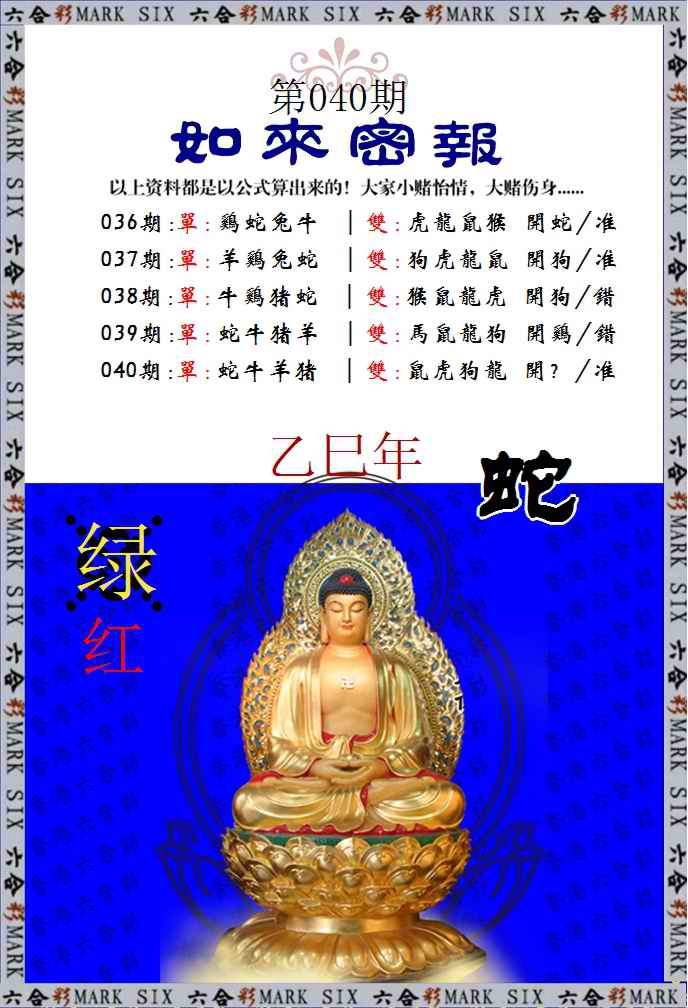 六合彩MARK SIX 六合彩MARK SIX 六合彩MARK SIX 六合彩MARK SIX
第040期
如來密報
以上资料都是以公式算出来的！大家小赌怡情，大赌伤身......
036期:單:鷄蛇兔牛 |雙:虎龍鼠猴 開蛇/准
037期:單:羊鷄兔蛇 |雙:狗虎龍鼠 開狗/准
038期:單:牛鷄猪蛇 |雙:猴鼠龍虎 開狗/錯
039期:單:蛇牛猪羊 |雙:馬鼠龍狗 開鷄/錯
040期:單:蛇牛羊猪 |雙:鼠虎狗龍 開?/准
乙巳年
蛇
绿
红
六合彩MARK SIX 六合彩MARK SIX 六合彩MARK SIX 六合彩MARK SIX